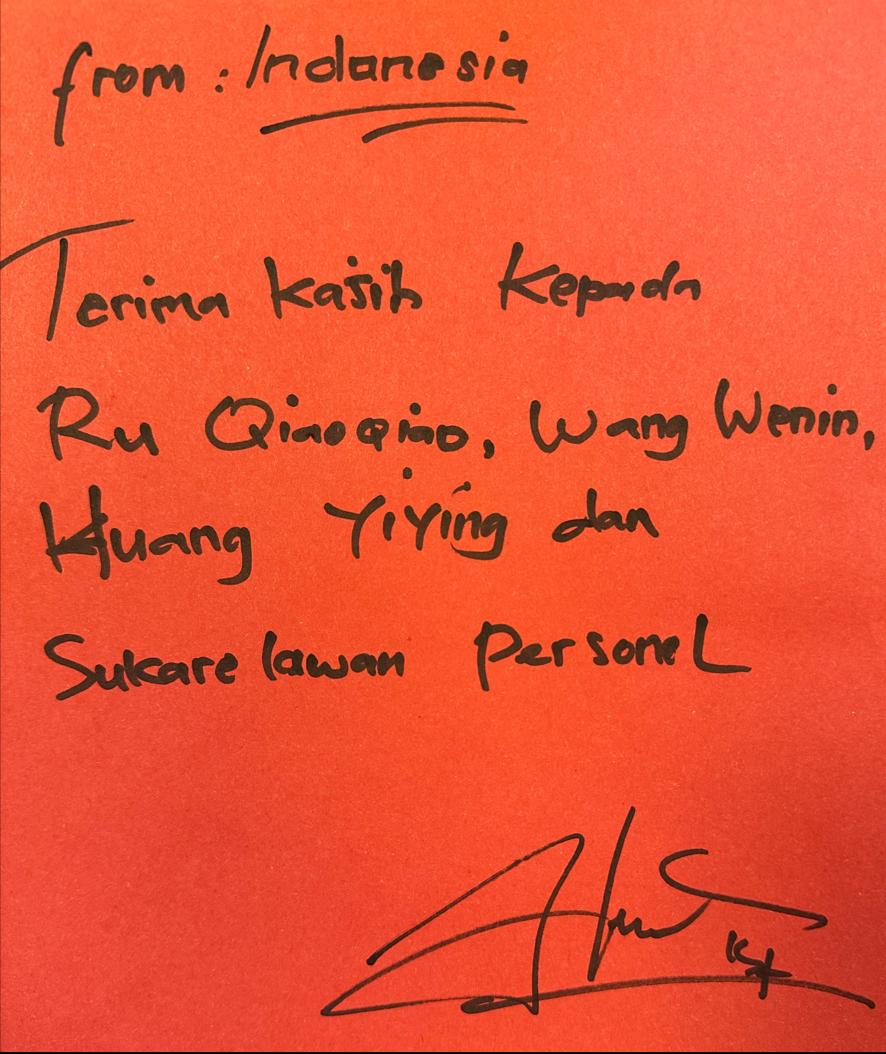 from : Indonesia
Terima kasih kepada
Ru Qiaoqiao, Wang Wenin,
Huang YiYing dan
Sukarelawan PersoneL